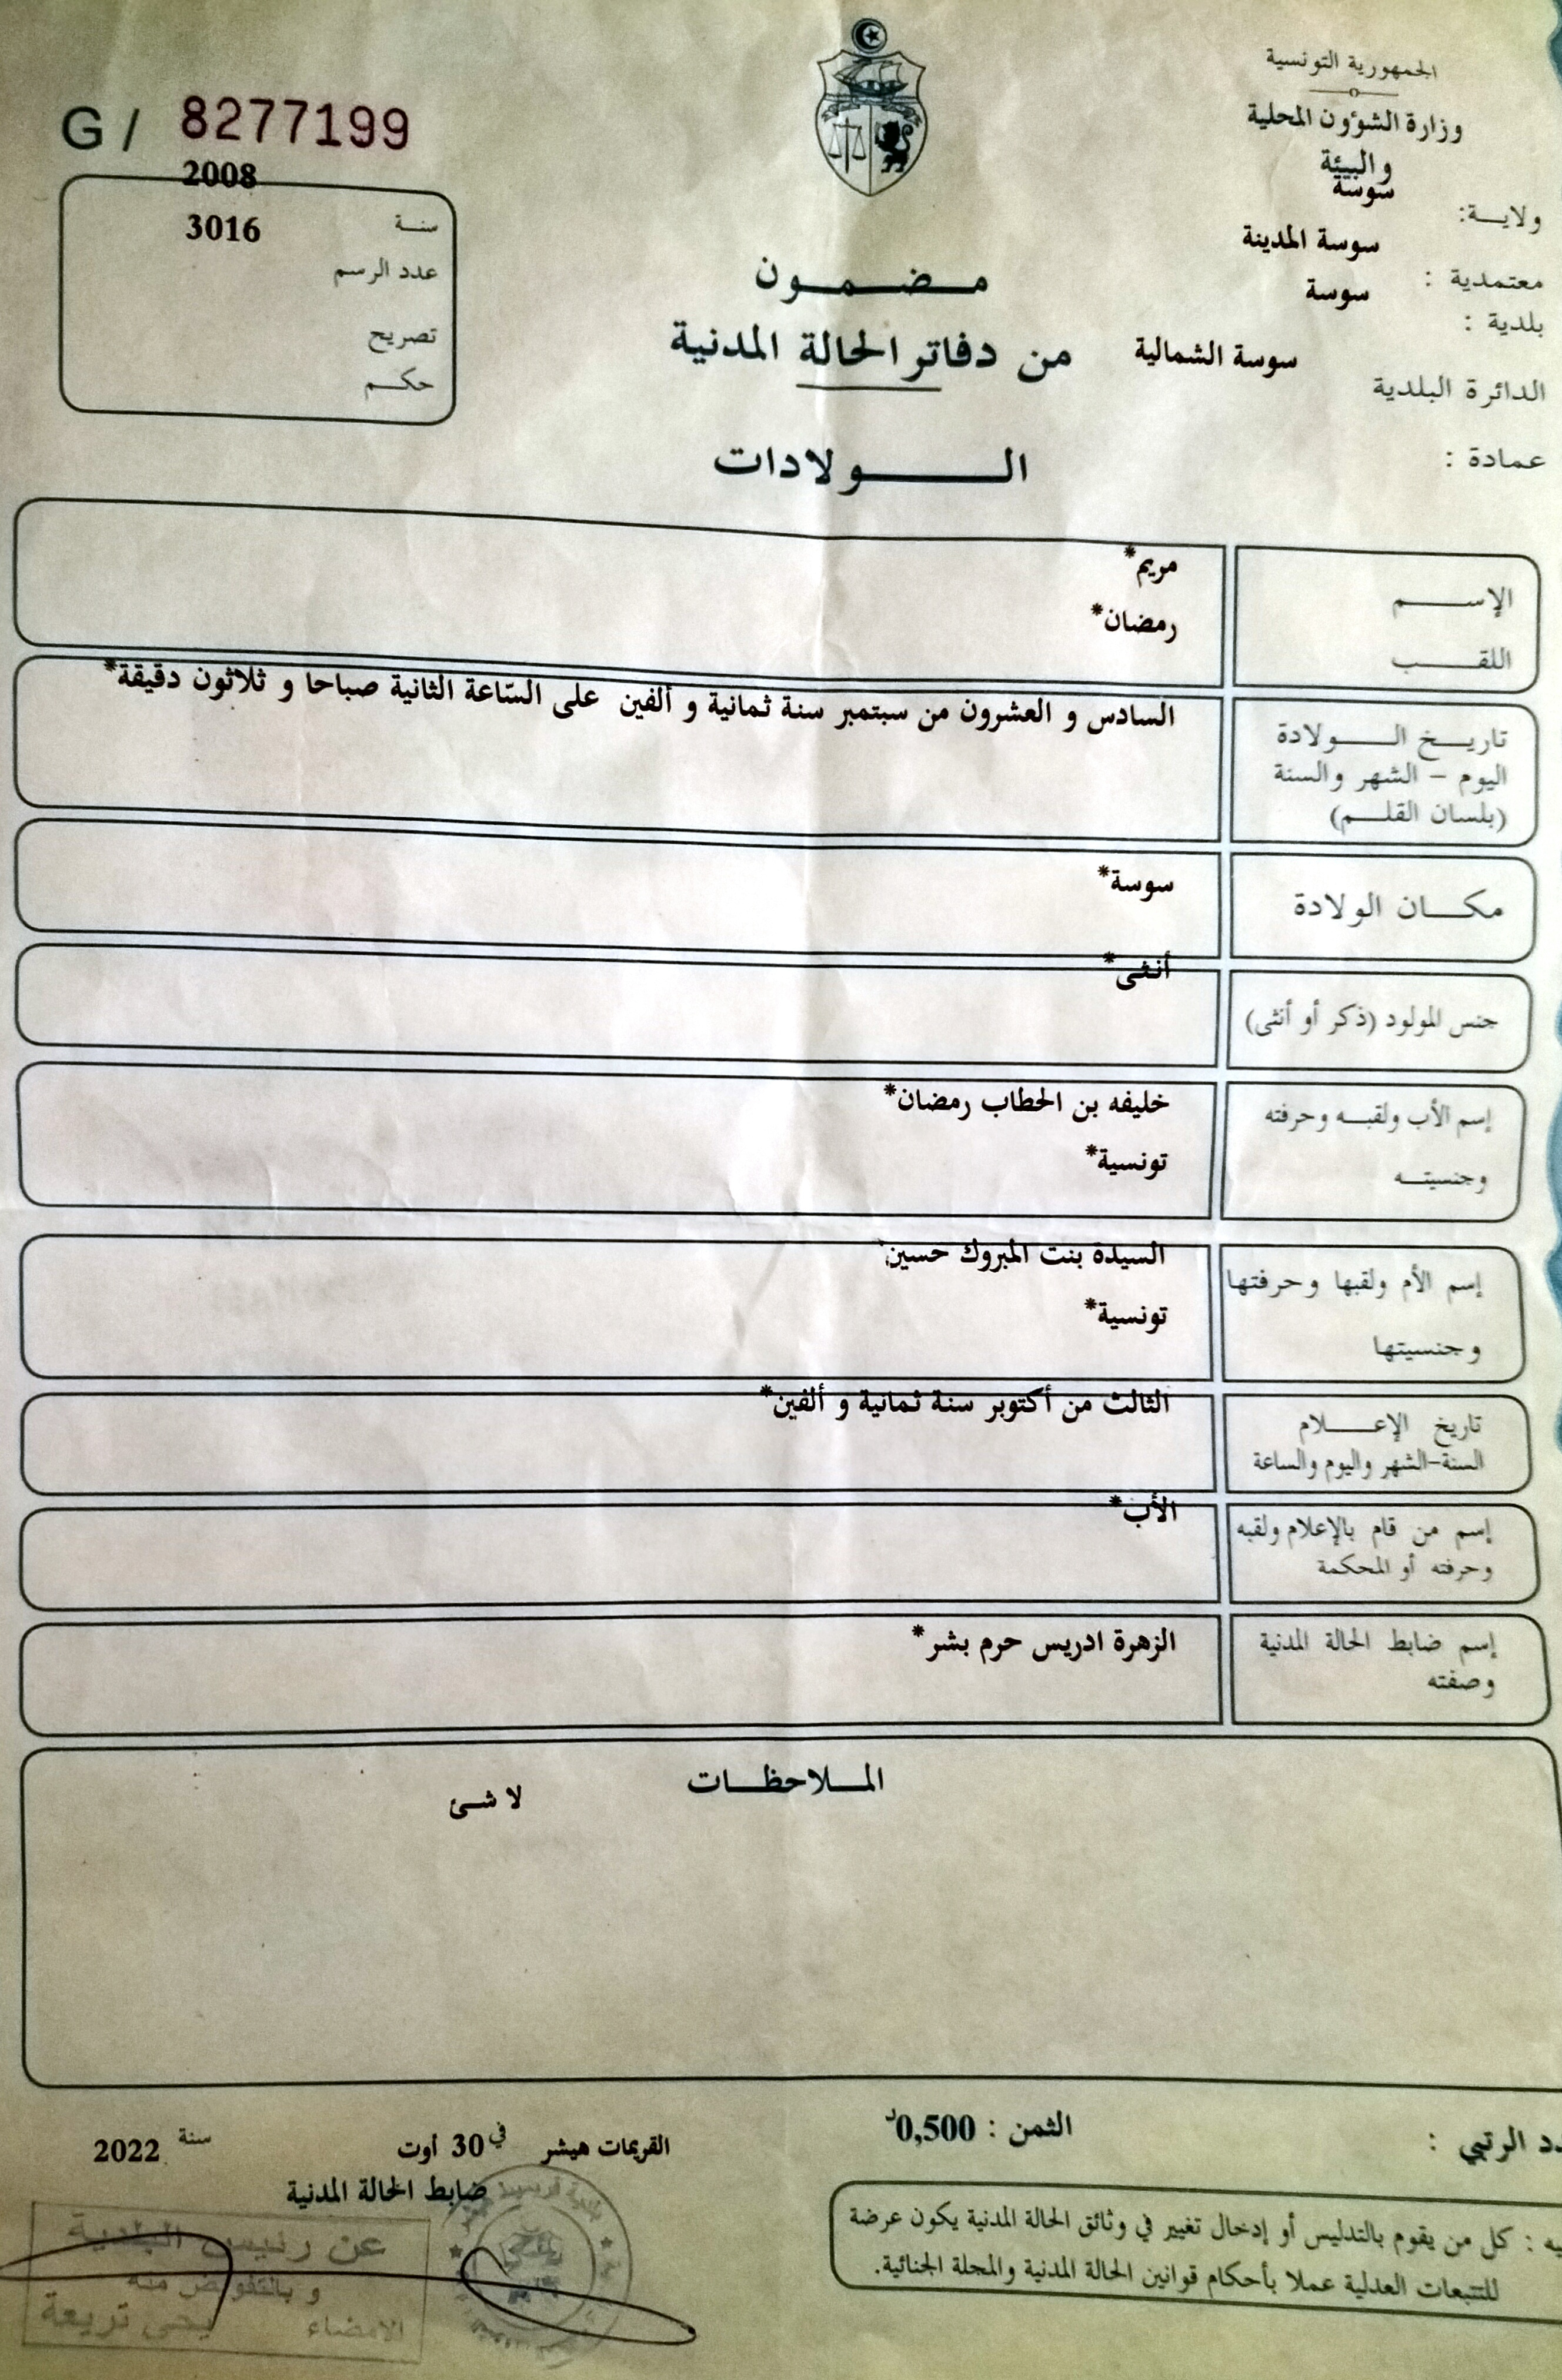 الجمهورية التونسية
وزارة الشؤون المحلية
والبيئة
ولايـــة: سوسة
معتمدية : سوسة المدينة
بلدية : سوسة
الدائرة البلدية سوسة الشمالية
عمادة :
G / 8277199
2008
سنــة 3016
عدد الرسم
تصريح
حكــم
مــضــمــون
من دفاتر الحالة المدنية
الــــولادات
الإســـــم مريم*
اللقـــــب رمضان*
تاريــخ الــــولادة السادس و العشرون من سبتمبر سنة ثمانية و ألفين على السّاعة الثانية صباحا و ثلاثون دقيقة*
اليوم – الشهر والسنة
(بلسان القلــم)
مكـــان الولادة سوسة*
جنس المولود (ذكر أو أنثى) أنثى*
إسم الأب ولقبــه وحرفته خليفه بن الحطاب رمضان*
وجنسيتــه تونسية*
إسم الأم ولقبها وحرفتها السيدة بنت المبروك حسين
وجنسيتها تونسية*
تاريخ الإعــــلام الثالث من أكتوبر سنة ثمانية و ألفين*
السنة-الشهر واليوم والساعة
إسم من قام بالإعلام ولقبه الأب*
وحرفته أو المحكمة
إسم ضابط الحالة المدنية الزهرة ادريس حرم بشر*
وصفته
المــلاحظــات
لا شئ
دد الرتبي :
الثمن : 0,500د
القريمات هيشر في 30 أوت سنة 2022
ضابط الحالة المدنية
يه : كل من يقوم بالتدليس أو إدخال تغيير في وثائق الحالة المدنية يكون عرضة
للتتبعات العدلية عملا بأحكام قوانين الحالة المدنية والمجلة الجنائية.
عن رئيس البلدية
و بالتفويض منه
الامضاء يحي تريعة